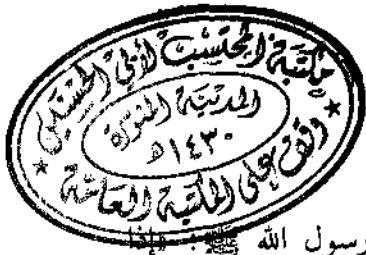 مكتبة المحتسب لأبي
المدينة المنورة
١٤٣٠ هـ
وقف على المكتبة العامة
رسول الله ﷺ: «إذا